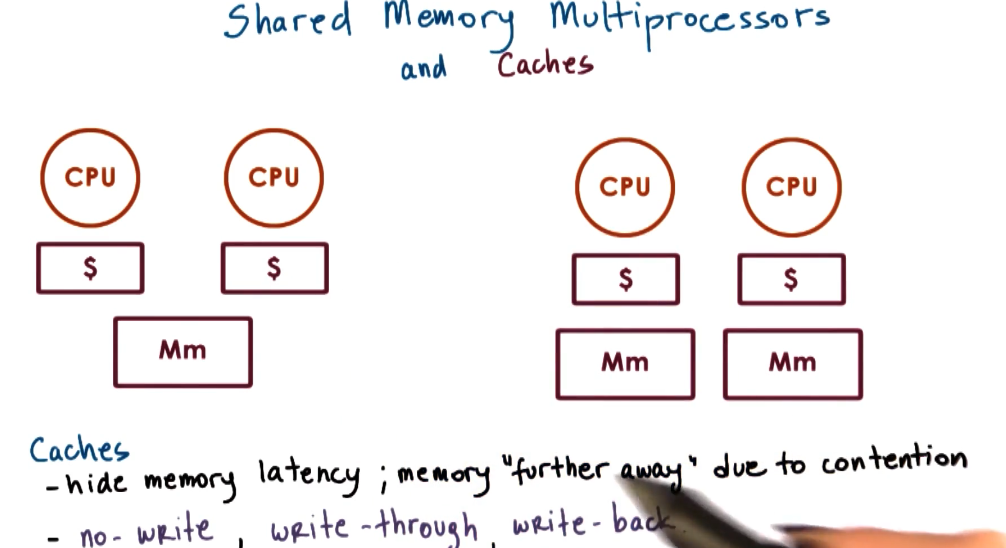 Shared Memory Multiprocessors
and Caches
CPU CPU CPU CPU
$ $ $ $
Mm Mm Mm
Caches
-hide memory latency ; memory "further away" due to contention
- no-write , write-through, write-back